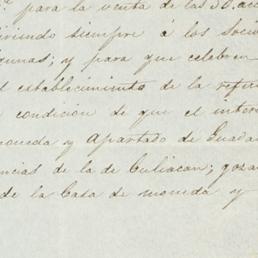 para la venta de las 30. acc
siempre á los Socio
; y para que celebren
establecimiento de la refer
condicion de que el inter
moneda y Apartado de Guada
ncias de la de Culiacan; goza
de la Casa de moneda y